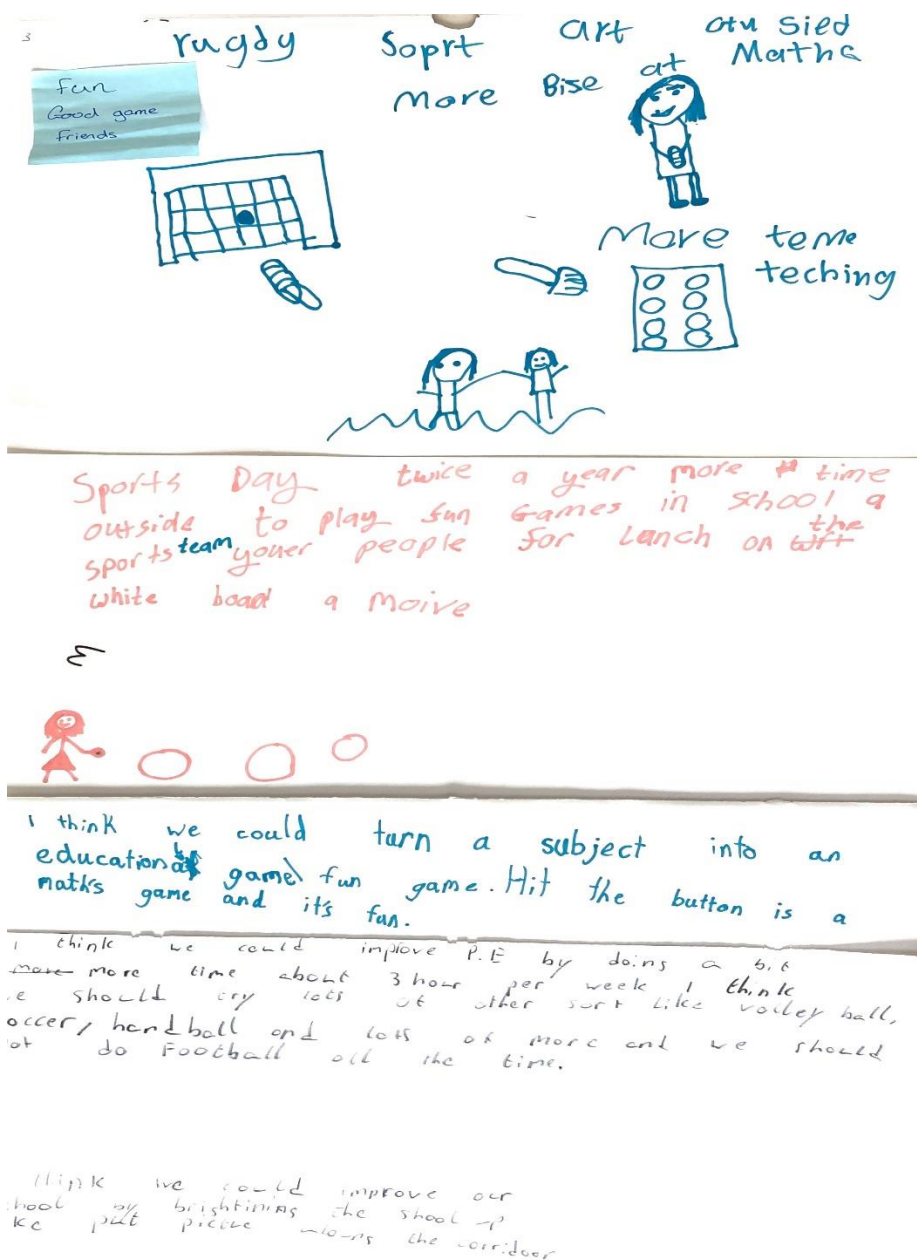 3
rugdy Soprt art otu sied
Maths
More Bise at
Fun
Good game
Friends
More teme
teching
Sports Day twice a year more time
outside to play fun Games in School a
sports team youer people for Lanch on the
white boad a Moive
I think we could turn a subject into an
educational game fun game. Hit the button is a
maths game and it's fun.
i think we could improve P.E by doing a bit
more more time about 3 hour per week I think
e should try lots of other sort like volley ball,
occer, handball and lots of more and we should
ot do Football all the time.
think we could improve our
hool by brightining the shool up
ke put pictue the corridoor